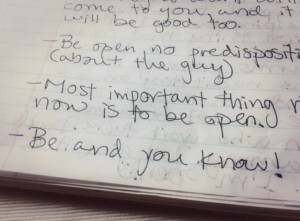 come to you and it
will be good too.
- Be open, no
(about the guy)
- Most important thing
now is to be open.
- Be and you know!